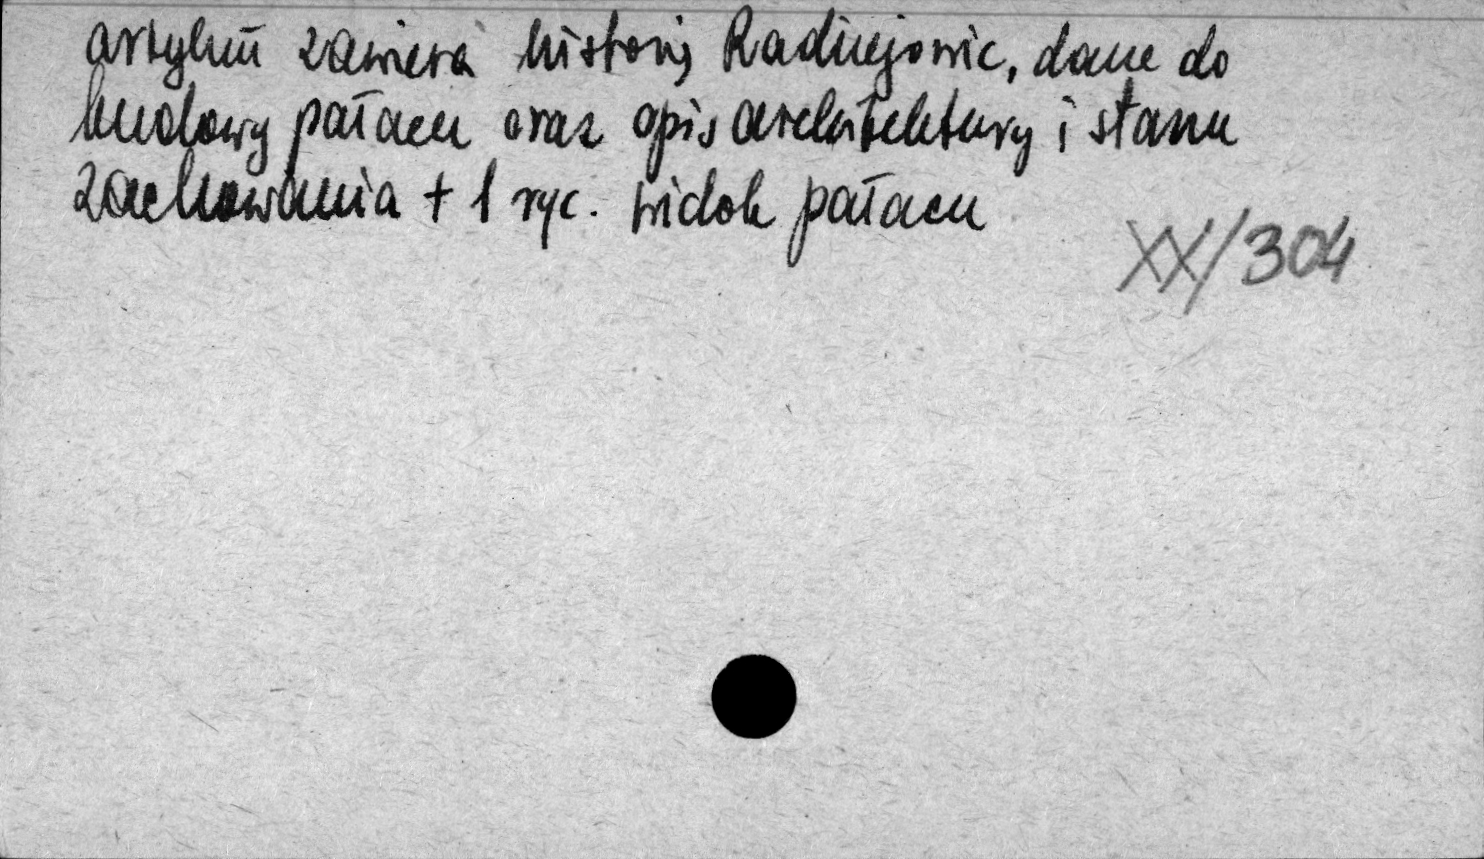 artykuł zawiera historię Radziejowic, dane do
budowy pałacu oraz opis architektury i stanu
zachowania + 1 ryc. widok pałacu
XX/304